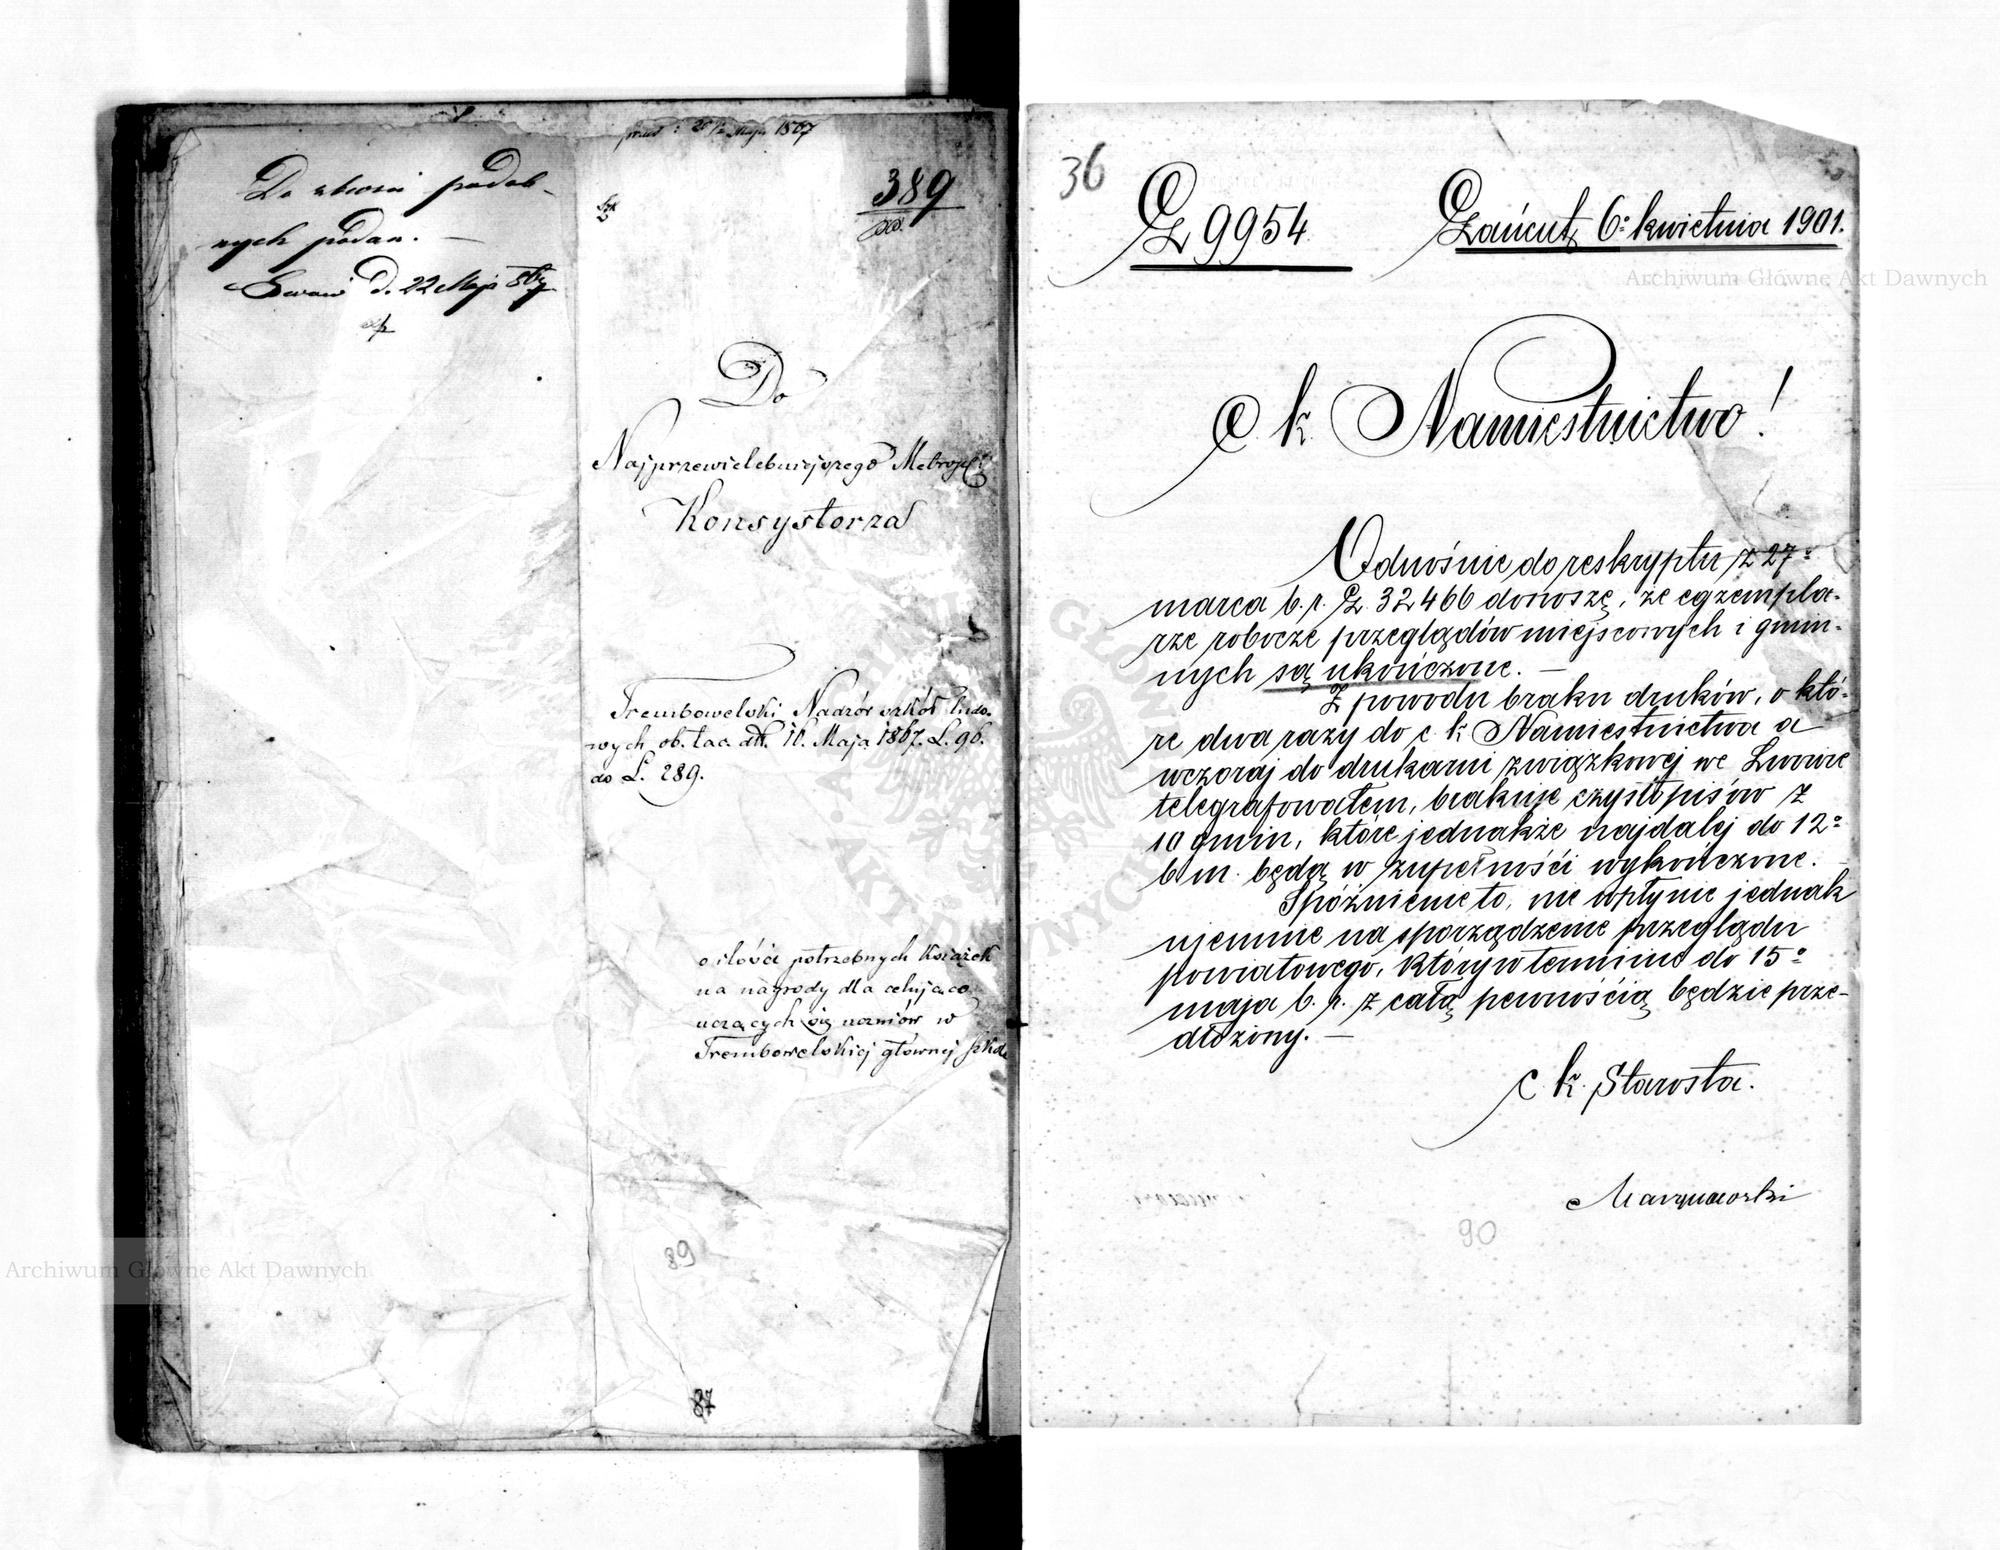 Do zbioru podob-
nych podan. —
Lwow D. 22 Maja 867
praes: 20/5 Maja 1867
389
Do
Najprzewielebniejszego Metropol:
Konsystorza
Trembowelski Nadzór szkół ludo-
wych ob. łac. dtt. 10. Maja 1867. L. 96.
do L. 289.
o ilości potrzebnych Książek
na nagrody dla celująco
uczących się uczniów w
Trembowelskiej głównej szkole
89
87
36
Cz 9954
Łańcut, 6º kwietnia 1901.
C. k. Namiestnictwo!
Odnośnie do reskryptu z 27º
marca b. r. Cz. 32466 donoszę, że egzempla-
rze robocze przeglądów miejscowych i gmin-
nych są ukończone. —
Z powodu braku druków, o któ-
re dwa razy do c. k. Namiestnictwa a
wczoraj do drukarni związkowej we Lwowie
telegrafowałem, brakuje czystopisów z
10 gmin, które jednakże najdalej do 12º
b. m. będą w zupełności wykończone. —
Spóźnienie to, nie wpłynie jednak
ujemnie na sporządzenie przeglądu
powiatowego, który w terminie do 15º
maja b. r. z całą pewnością będzie prze-
dłożony. —
C. k. Starosta.
90
Archiwum Główne Akt Dawnych
Archiwum Główne Akt Dawnych